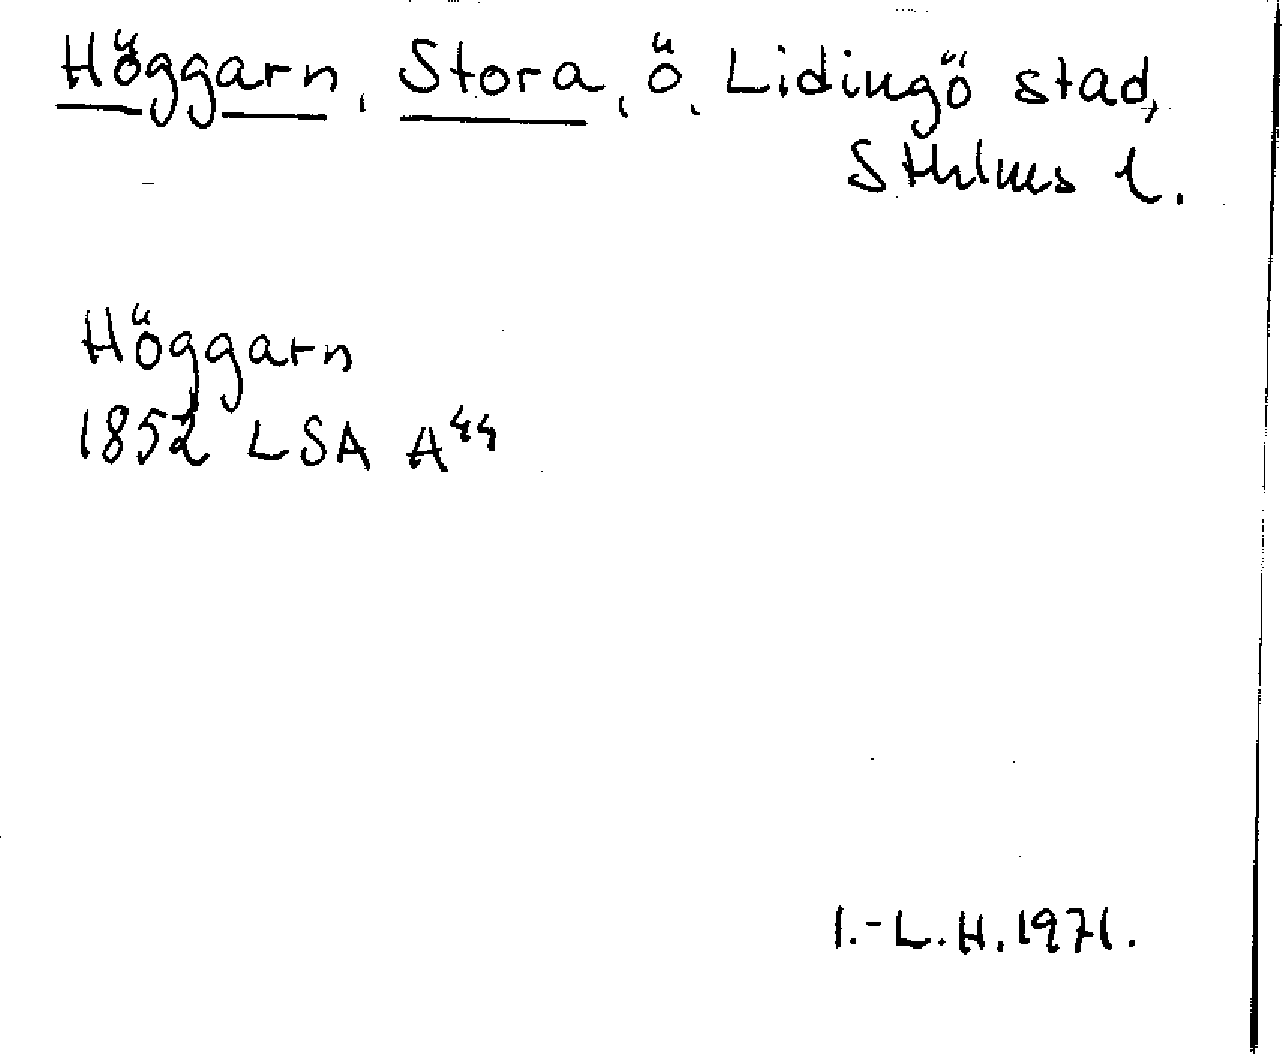 Höggarn, Stora, ö, Lidingö stad,
Sthlms l.
Höggarn
1852 LSA A⁴⁴
I.-L.H. 1971.